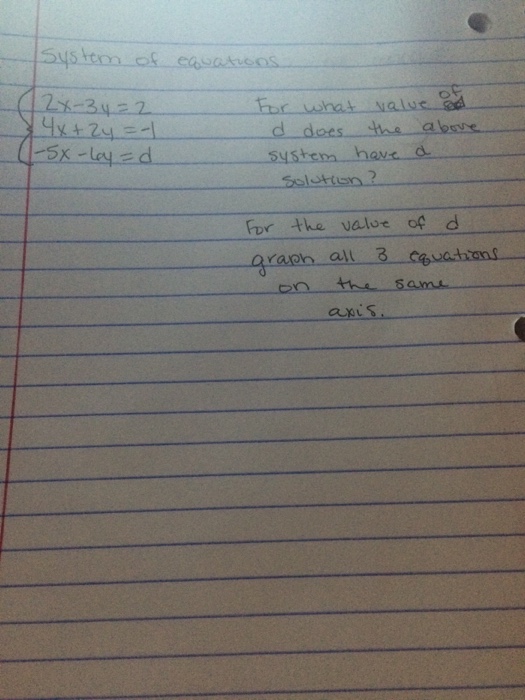 System of equations
2x-3y=2
4x+2y=-1
-5x-6y=d
For what value of
d does the above
system have a
solution?
For the value of d
graph all 3 equations
on the same
axis.